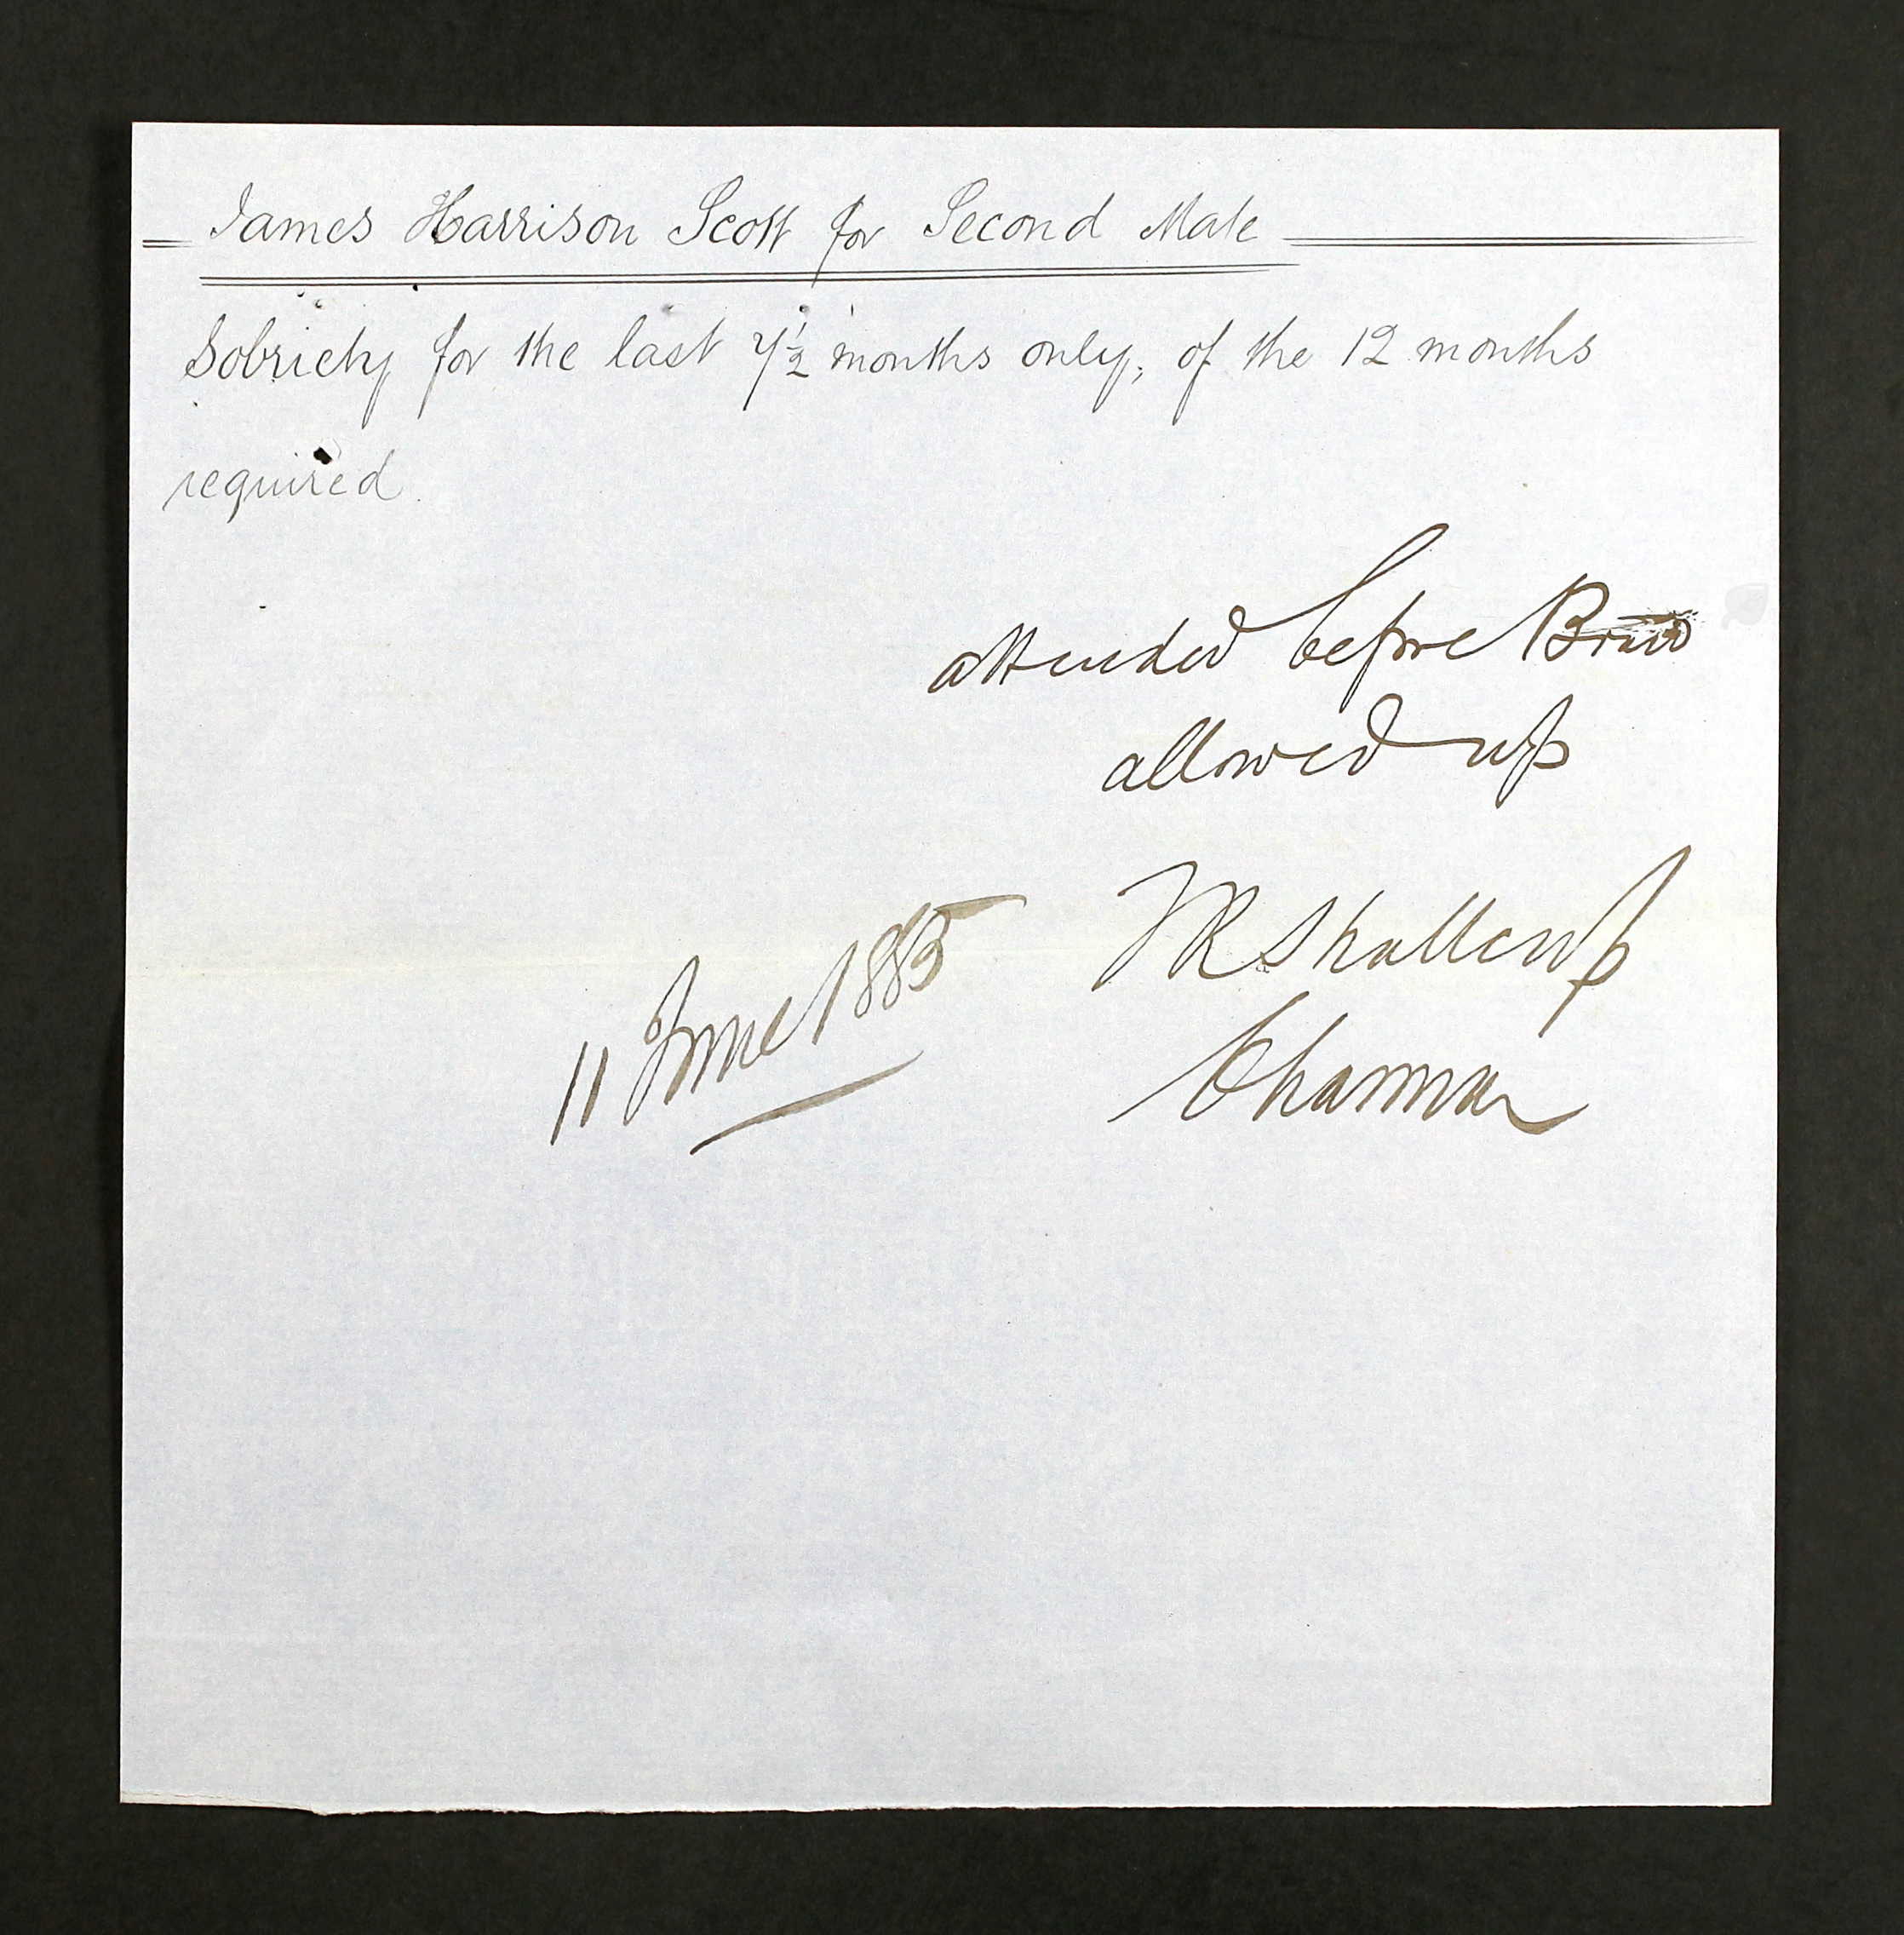 James Harrison Scott for Second Mate
Sobriety for the last 7½ months only, of the 12 months
required.
attended before Board
allowed up
JR Shallcrop
Chairman
11 June 1885